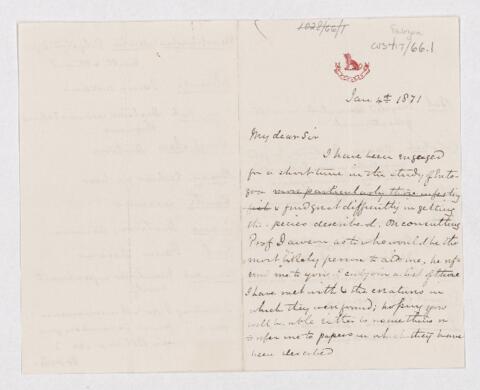 1028/66/1
WS4/17/66.1
Jan 4th 1871
My dear Sir
I have been engaged
for a short time in the study of Ento-
zoa more particularly those infesting
& find great difficulty in getting
the species described. On consulting
Prof Dawson as to who would be the
most likely person to aid me, he ref-
erred me to you. I enclose a list of those
I have met with & the creatures in
which they were found; hoping you
will be able either to name them or
to refer me to papers in which they have
been described